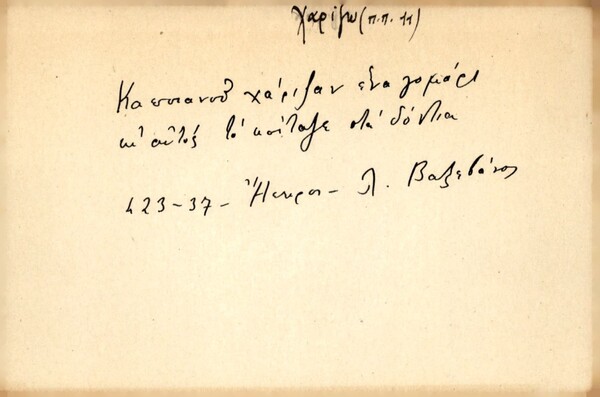 Χαρίζω (π.π. 11)
Καποιανοῦ χάριζαν ἕνα γομάρι
κι' αὐτός τό κοίταζε στά δόντια
423-37- Ἤπειρος - Λ. Βαξεβάνος